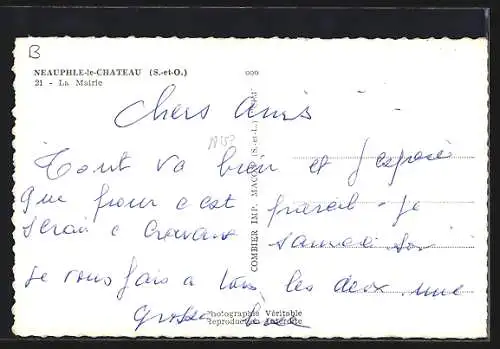 B
NEAUPHLE-le-CHATEAU (S.-et-O.)
21 - La Mairie
Chers Amis
Tout va bien et j'espere
que pour c'est pareil - je
serai a samedi soi
je vous fais a tous les deux une
grosse bise
COMBIER IMP. MACON (S.-et-L.)
Photographie Véritable
Reproduction Interdite